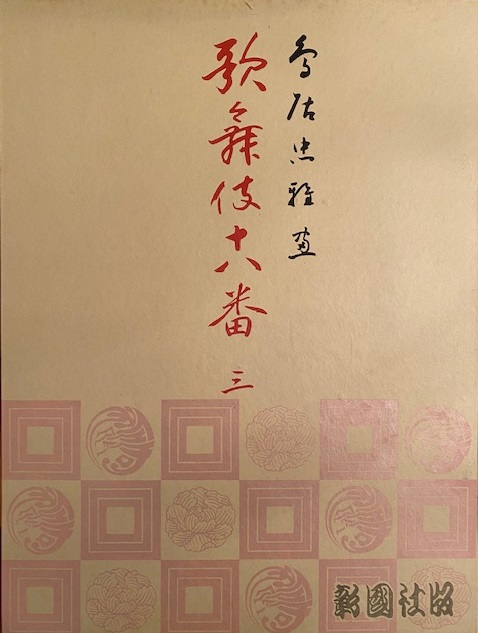 鳥居忠雅画
歌舞伎十八番 三
彰國社版